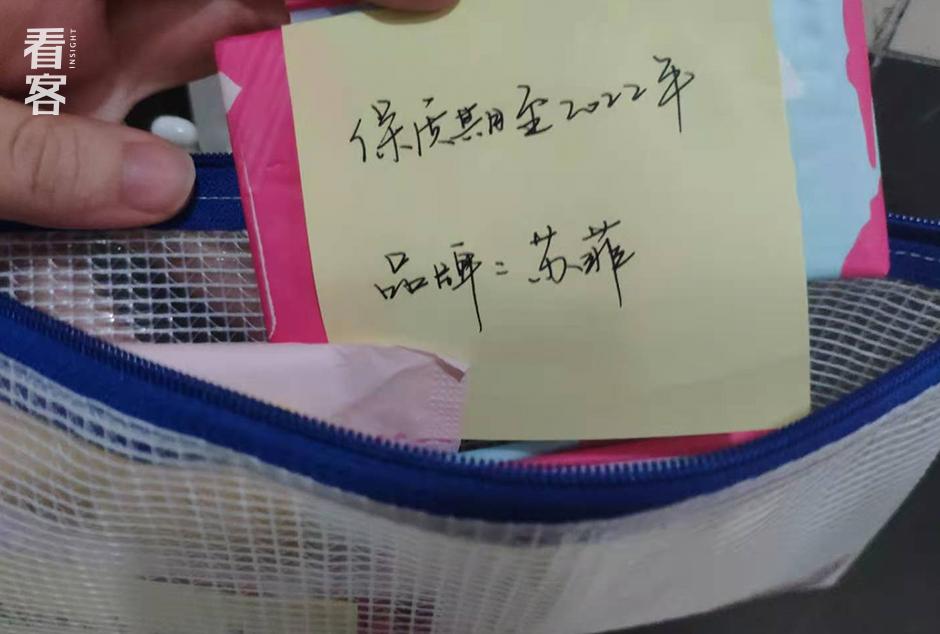 看客
INSIGHT
保质期至2022年
品牌：苏菲